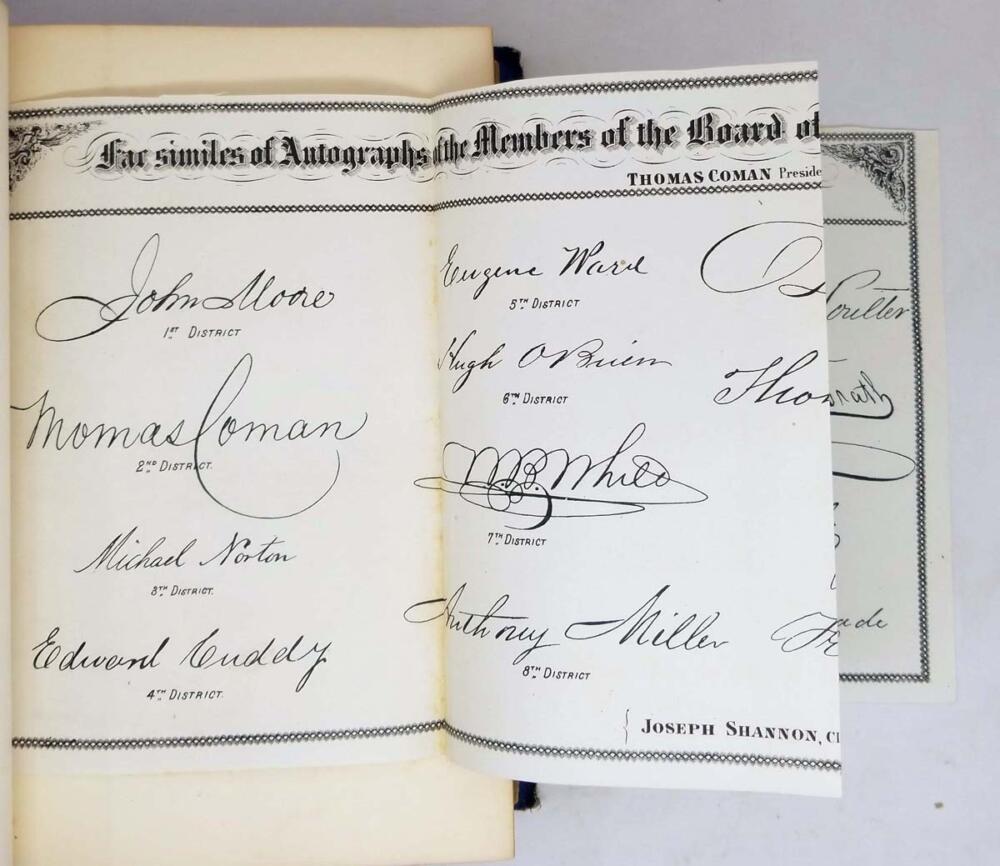 Fac similes of Autographs of the Members of the Board of
THOMAS COMAN Preside
John Moore
1ST DISTRICT
Thomas Coman
2ND DISTRICT.
Michael Norton
3TH DISTRICT.
Edward Cuddy
4TH DISTRICT.
Eugene Ward
5TH DISTRICT
Hugh O'Brien
6TH DISTRICT
7TH DISTRICT
Anthony Miller
8TH DISTRICT
JOSEPH SHANNON, Cl
Coulter